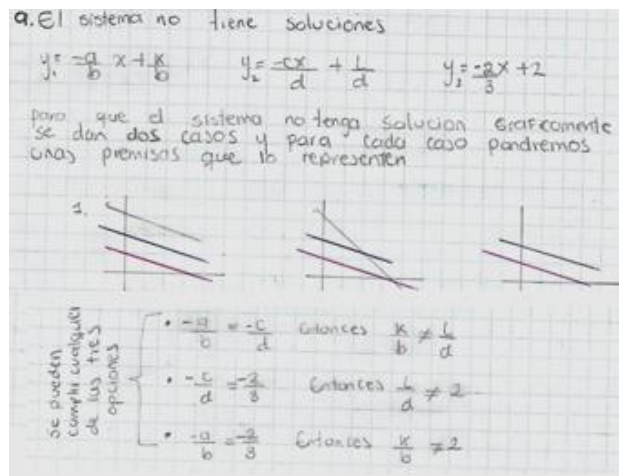 a. El sistema no tiene soluciones
y₁= -a/b x + k/b y₂= -cx/d + L/d y₃= -2x/3 + 2
para que el sistema no tenga solucion Graficamente
se dan dos casos y para cada caso pondremos
unas premisas que lo representen
1.
se pueden
cumplir cualquier
de las tres
opciones
• -a/b = -c/d Entonces k/b ≠ L/d
• -c/d = -2/3 Entonces L/d ≠ 2
• -a/b = -2/3 Entonces k/b ≠ 2